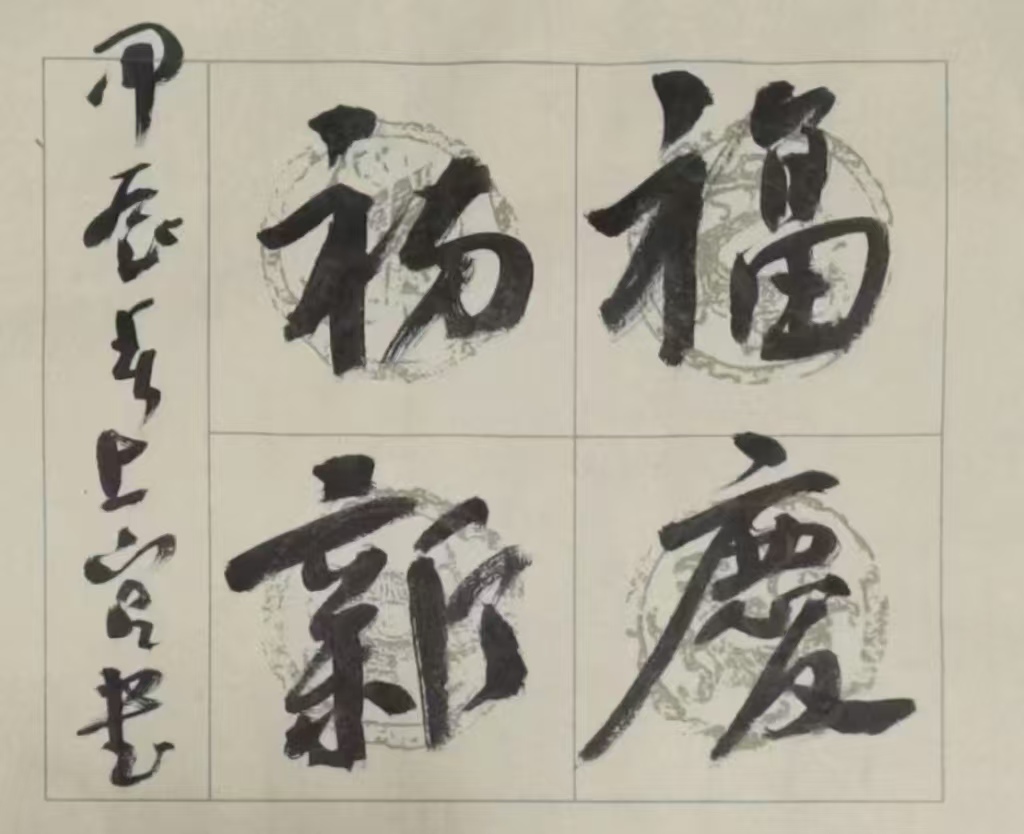 福慶
初新
甲辰春上官書